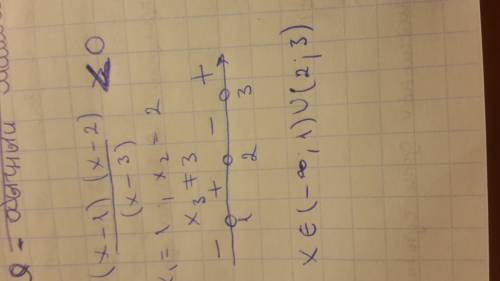 (x-1)(x-2)
———— < 0
(x-3)
x₁ = 1, x₂ = 2
x₃ ≠ 3
- + - +
1 2 3
x ∈ (-∞; 1) ∪ (2; 3)